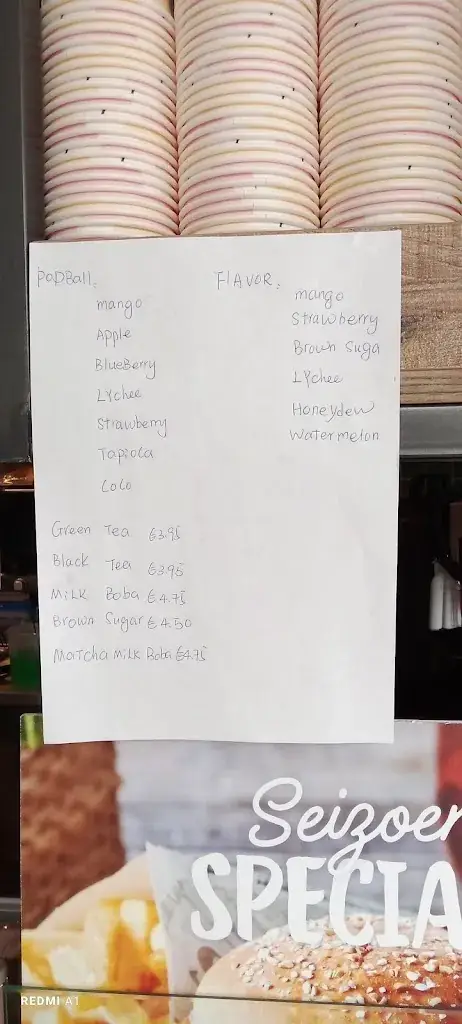 PopBall:
mango
Apple
BlueBerry
Lychee
Strawberry
Tapioca
CoCo
FlAVOR:
mango
Strawberry
Brown Suga
Lychee
Honeydew
Watermelon
Green Tea €3.95
Black Tea €3.95
MiLK Boba €4.75
Brown Sugar €4.50
Matcha MiLK Boba €4.75
Seizoen
SPECIA
REDMI A1